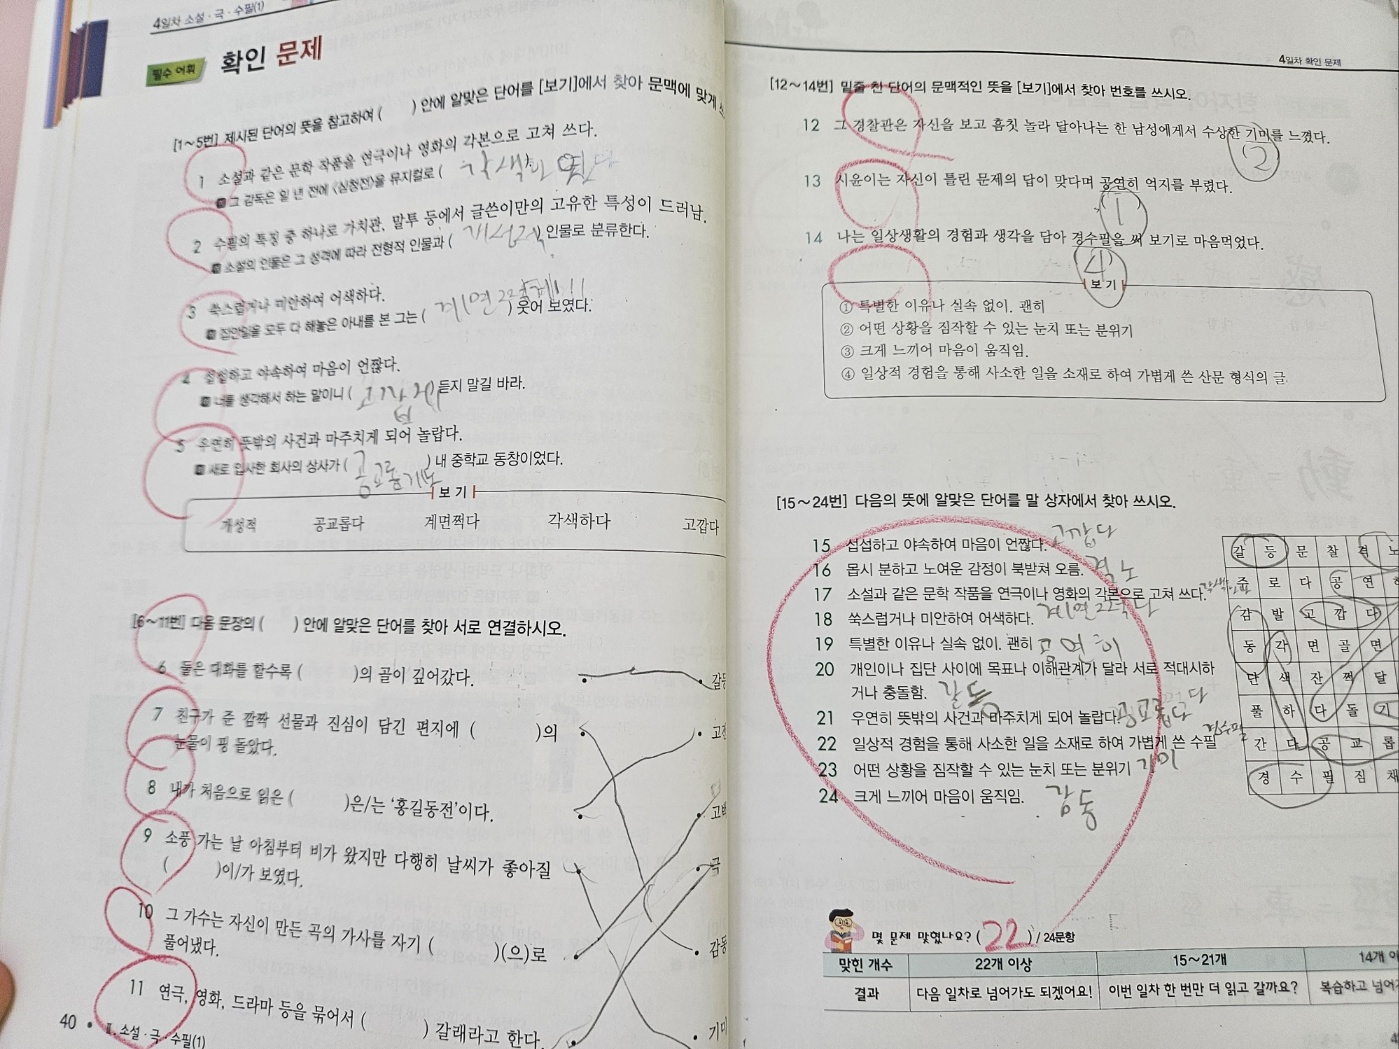 4일차 소설·극·수필(1)
필수 어휘 확인 문제
[1~5번] 제시된 단어의 뜻을 참고하여 ( ) 안에 알맞은 단어를 [보기]에서 찾아 문맥에 맞게
1 소설과 같은 문학 작품을 연극이나 영화의 각본으로 고쳐 쓰다.
그 감독은 일 년 전에 <심청전>을 뮤지컬로 (
2 수필의 특징 중 하나로 가치관, 말투 등에서 글쓴이만의 고유한 특성이 드러남.
소설의 인물은 그 성격에 따라 전형적 인물과 ( 개성적 ) 인물로 분류한다.
3 쑥스럽거나 미안하여 어색하다.
집안일을 모두 다 해놓은 아내를 본 그는 ( 계면쩍게!!! ) 웃어 보였다.
4 섭섭하고 야속하여 마음이 언짢다.
너를 생각해서 하는 말이니 ( 고깝게 듣지 말길 바라.
5 우연히 뜻밖의 사건과 마주치게 되어 놀랍다.
새로 입사한 회사의 상사가 ( 공교롭게도 ) 내 중학교 동창이었다.
보기
개성적 공교롭다 계면쩍다 각색하다 고깝다
[6~11번] 다음 문장의 ( ) 안에 알맞은 단어를 찾아 서로 연결하시오.
6 둘은 대화를 할수록 ( )의 골이 깊어갔다.
7 친구가 준 깜짝 선물과 진심이 담긴 편지에 ( )의
눈물이 핑 돌았다.
8 내가 처음으로 읽은 ( )은/는 '홍길동전'이다.
9 소풍 가는 날 아침부터 비가 왔지만 다행히 날씨가 좋아질
( )이/가 보였다.
10 그 가수는 자신이 만든 곡의 가사를 자기 ( )(으)로
풀어냈다.
11 연극, 영화, 드라마 등을 묶어서 ( ) 갈래라고 한다.
극
40 • Ⅱ. 소설·극·수필(1)
4일차 확인 문제
[12~14번] 밑줄 친 단어의 문맥적인 뜻을 [보기]에서 찾아 번호를 쓰시오.
12 그 경찰관은 자신을 보고 흠칫 놀라 달아나는 한 남성에게서 수상한 기미를 느꼈다.
②
13 시윤이는 자신이 틀린 문제의 답이 맞다며 공연히 억지를 부렸다.
①
14 나는 일상생활의 경험과 생각을 담아 경수필을 써 보기로 마음먹었다.
④
보기
① 특별한 이유나 실속 없이. 괜히
② 어떤 상황을 짐작할 수 있는 눈치 또는 분위기
③ 크게 느끼어 마음이 움직임.
④ 일상적 경험을 통해 사소한 일을 소재로 하여 가볍게 쓴 산문 형식의 글
[15~24번] 다음의 뜻에 알맞은 단어를 말 상자에서 찾아 쓰시오.
15 섭섭하고 야속하여 마음이 언짢다. 고깝다
16 몹시 분하고 노여운 감정이 북받쳐 오름. 격노
17 소설과 같은 문학 작품을 연극이나 영화의 각본으로 고쳐 쓰다.
18 쑥스럽거나 미안하여 어색하다. 계면쩍다
19 특별한 이유나 실속 없이. 괜히 공연히
20 개인이나 집단 사이에 목표나 이해관계가 달라 서로 적대시하
거나 충돌함. 갈등
21 우연히 뜻밖의 사건과 마주치게 되어 놀랍다. 공교롭다
22 일상적 경험을 통해 사소한 일을 소재로 하여 가볍게 쓴 수필 경수필
23 어떤 상황을 짐작할 수 있는 눈치 또는 분위기 기미
24 크게 느끼어 마음이 움직임. 감동
갈 등 문 찰 격 노
로 다 공 연
감 발 고 깝 다
동 각 면 골 면
단 색 잔 쩍 달
풀 하 다 돌 기
간 다 공 교 롭
경 수 필 짐 채
몇 문제 맞혔나요? ( 22 ) / 24문항
맞힌 개수 22개 이상 15~21개 14개
결과 다음 일차로 넘어가도 되겠어요! 이번 일차 한 번만 더 읽고 갈까요? 복습하고